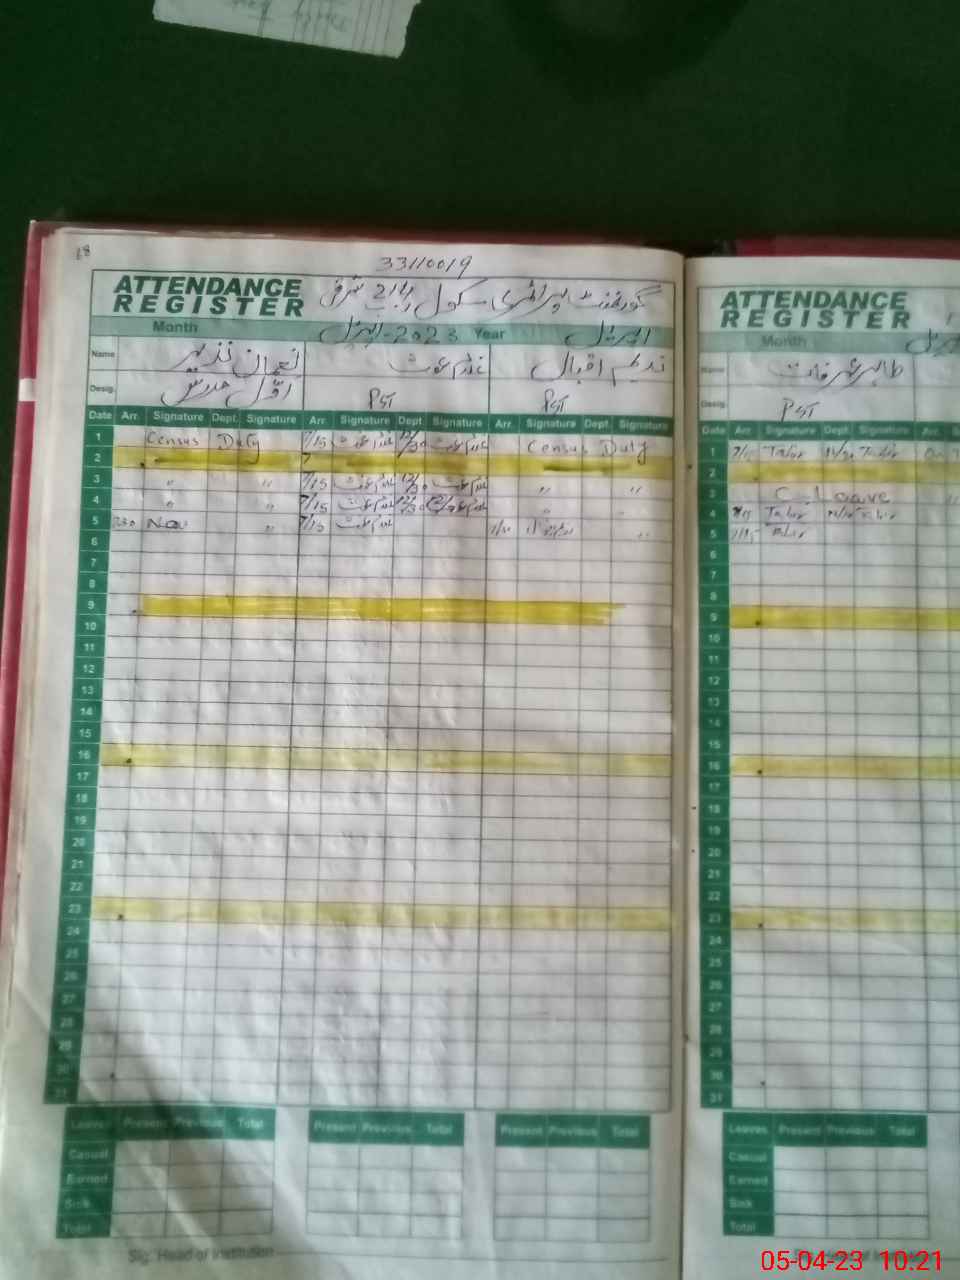 68
33110019
ATTENDANCE
REGISTER
گورنمنٹ پرائمری سکول
Month اپریل-2023 Year اپریل
Name نعمان نذیر غلام غوث ندیم اقبال
Desig. PST PST
Date Arr. Signature Dept. Signature Arr. Signature Dept Signature Arr. Signature Dept. Signature
1 Census Duty 7/15 غلام غوث 12/30 غلام غوث Census Duty
2
3 " " 7/15 غلام غوث 12/30 غلام غوث " "
4 " " 7/15 غلام غوث 12/30 " "
5 7:30 " 7/15 غلام غوث "
6
7
8
9
10
11
12
13
14
15
16
17
18
19
20
21
22
23
24
25
26
27
28
29
30
31
Leaves Present Previous Total Present Previous Total Present Previous Total
Casual
Earned
Sick
Total
Sig. Head of Institution
ATTENDANCE
REGISTER
Month
Name طاہر
Desig. PST
Date Arr. Signature Dept. Signature Arr.
1 7/15 Tahir Tahir
2
3 C. Leave
4 7/15 Tahir Tahir
5 7/15 Tahir
6
7
8
9
10
11
12
13
14
15
16
17
18
19
20
21
22
23
24
25
26
27
28
29
30
31
Leaves Present Previous Total
Casual
Earned
Sick
Total
Sig. Head of Institution
05-04-23 10:21